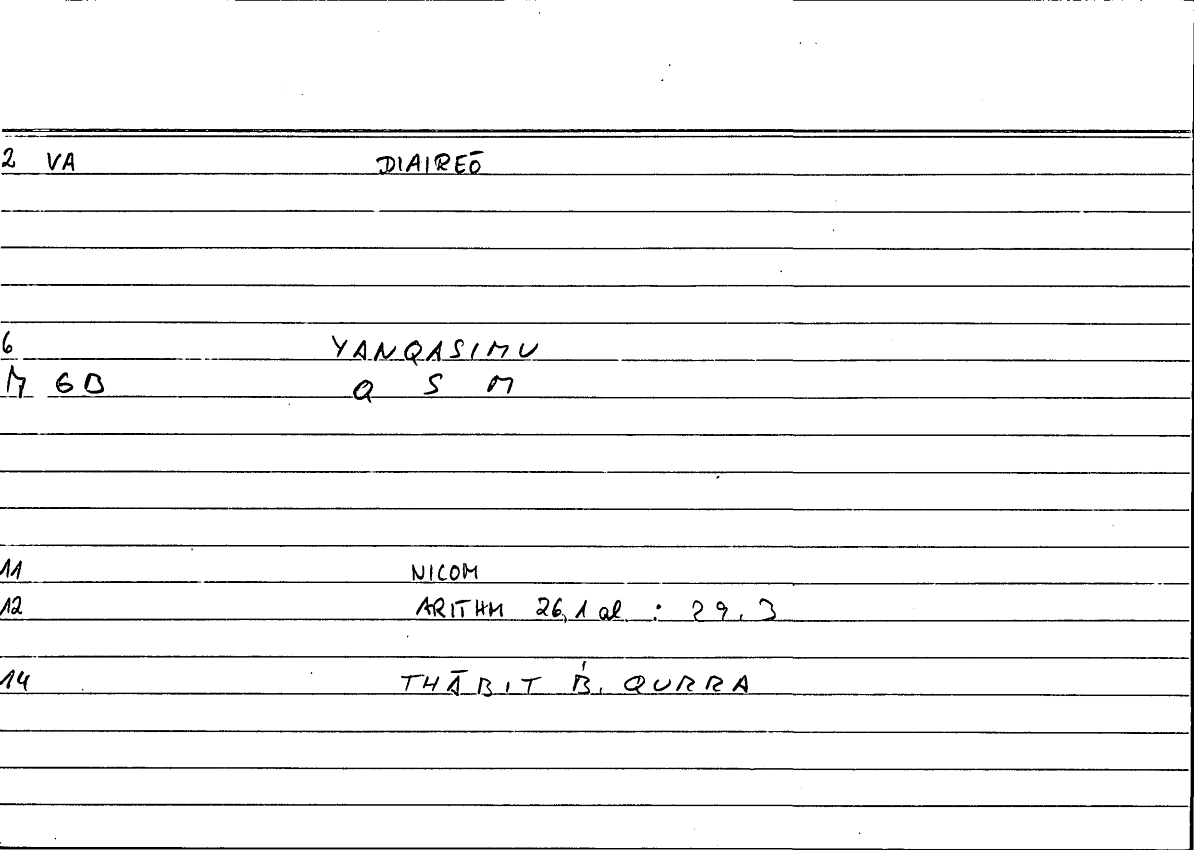 2 VA DIAIREŌ
6 YANQASIMU
M GB Q S M
11 NICOM
12 ARITHM 26,1 al : 29.3
14 THĀBIT B. QURRA